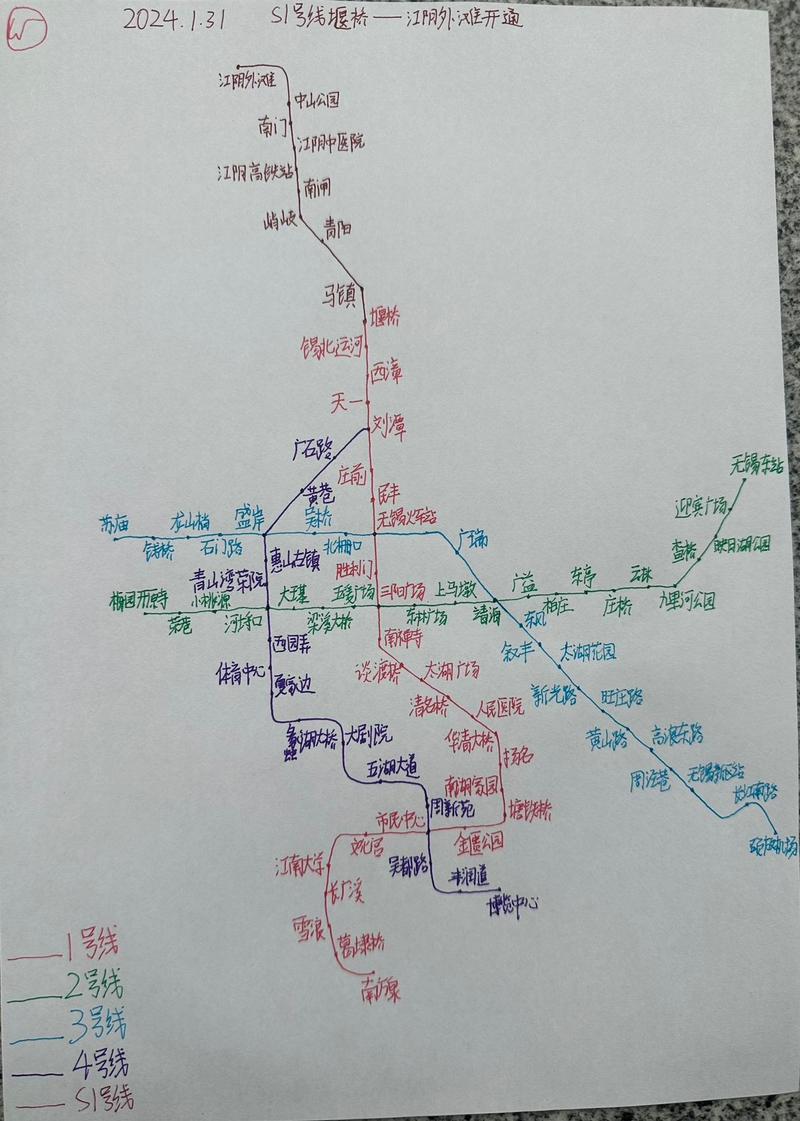 W
2024.1.31 S1号线堰桥——江阴外滩开通
江阴外滩
中山公园
南门
江阴中医院
江阴高铁站
南闸
峭岐
青阳
马镇
堰桥
锡北运河
西漳
天一
刘潭
广石路
庄前
黄巷
民丰
无锡东站
迎宾广场
映月湖公园
查桥
九里河公园
苏庙
钱桥
龙山梢
石门路
盛岸
吴桥
北栅口
无锡火车站
广瑞
惠山古镇
胜利门
青山湾荣院
梅园开原寺
荣巷
小桃源
河埒口
大王基
梁溪大桥
五爱广场
三阳广场
东林广场
上马墩
靖海
广益
柏庄
东亭
庄桥
云林
东风
西园弄
南禅寺
叙丰
太湖花园
体育中心
夏家边
谈渡桥
太湖广场
清名桥
人民医院
新光路
旺庄路
蠡湖大桥
大剧院
华清大桥
扬名
黄山路
高浪东路
五湖大道
南湖家园
周泾巷
无锡新区站
长江南路
硕放机场
周新苑
塘铁桥
市民中心
文化宫
金匮公园
江南大学
吴都路
丰润道
博览中心
长广溪
雪浪
葛埭桥
南方泉
1号线
2号线
3号线
4号线
S1号线